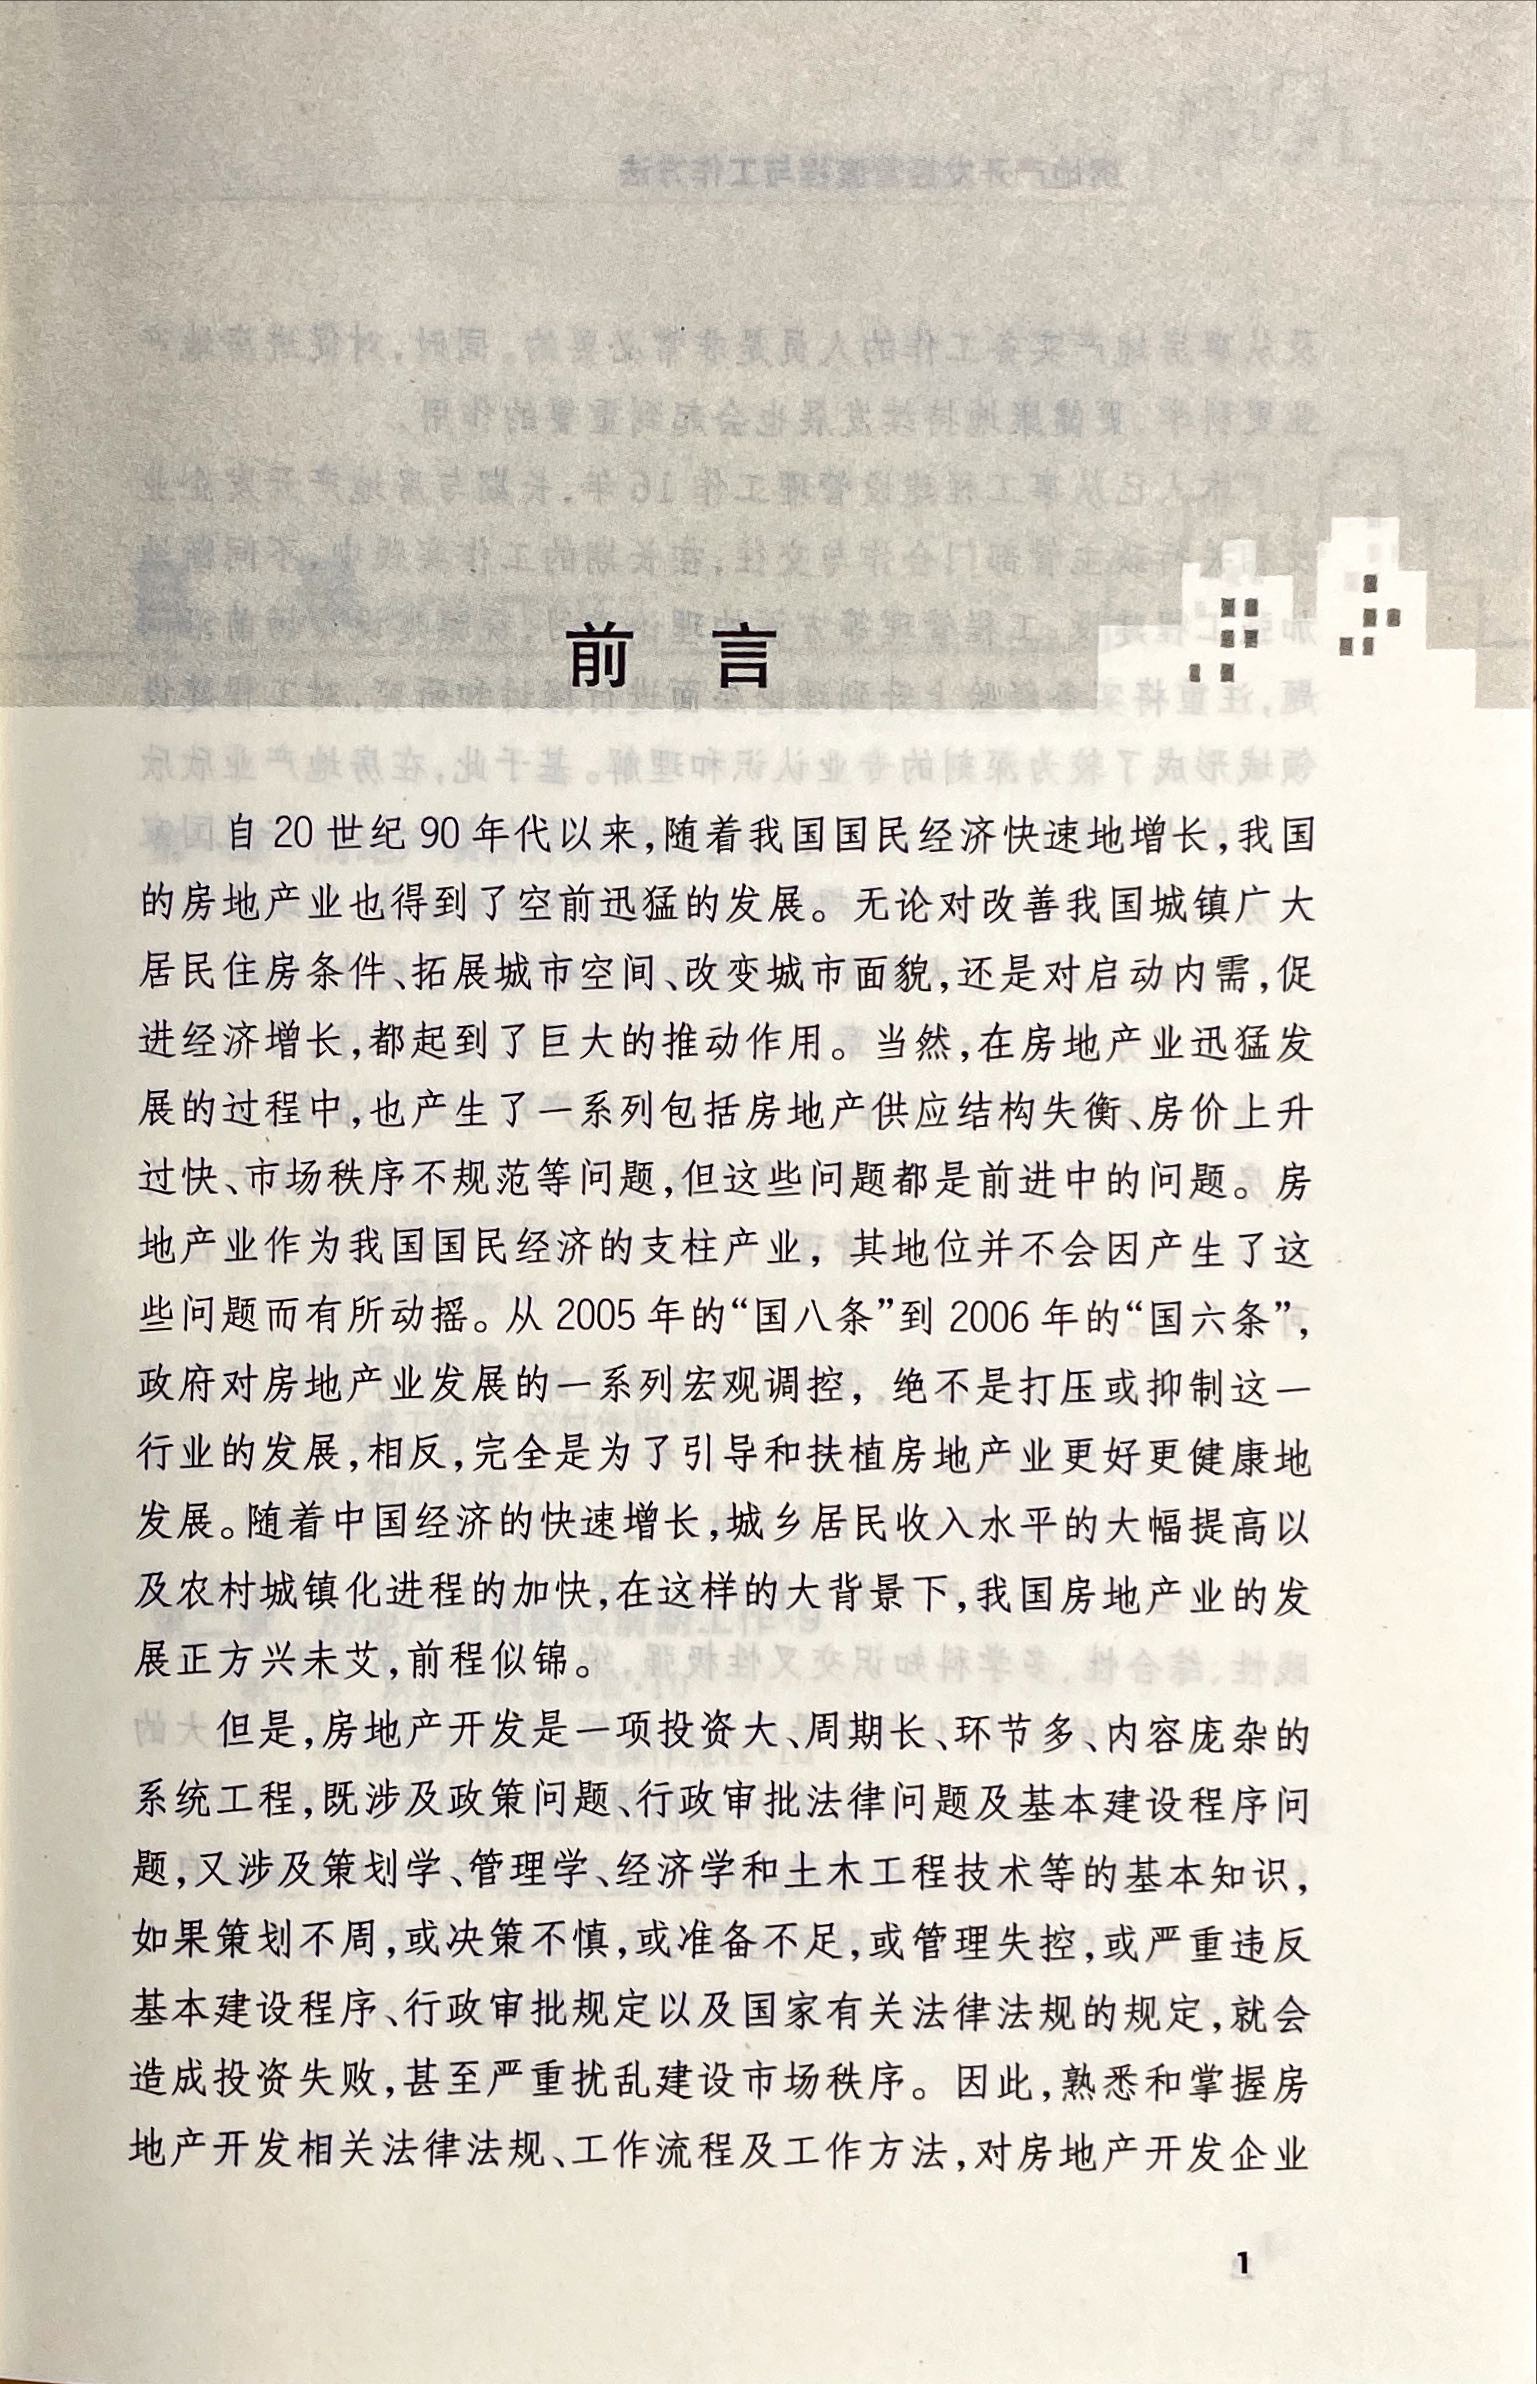 前言
自20世纪90年代以来,随着我国国民经济快速地增长,我国
的房地产业也得到了空前迅猛的发展。无论对改善我国城镇广大
居民住房条件、拓展城市空间、改变城市面貌,还是对启动内需,促
进经济增长,都起到了巨大的推动作用。当然,在房地产业迅猛发
展的过程中,也产生了一系列包括房地产供应结构失衡、房价上升
过快、市场秩序不规范等问题,但这些问题都是前进中的问题。房
地产业作为我国国民经济的支柱产业,其地位并不会因产生了这
些问题而有所动摇。从2005年的“国八条”到2006年的“国六条”,
政府对房地产业发展的一系列宏观调控,绝不是打压或抑制这一
行业的发展,相反,完全是为了引导和扶植房地产业更好更健康地
发展。随着中国经济的快速增长,城乡居民收入水平的大幅提高以
及农村城镇化进程的加快,在这样的大背景下,我国房地产业的发
展正方兴未艾,前程似锦。
但是,房地产开发是一项投资大、周期长、环节多、内容庞杂的
系统工程,既涉及政策问题、行政审批法律问题及基本建设程序问
题,又涉及策划学、管理学、经济学和土木工程技术等的基本知识,
如果策划不周,或决策不慎,或准备不足,或管理失控,或严重违反
基本建设程序、行政审批规定以及国家有关法律法规的规定,就会
造成投资失败,甚至严重扰乱建设市场秩序。因此,熟悉和掌握房
地产开发相关法律法规、工作流程及工作方法,对房地产开发企业
1